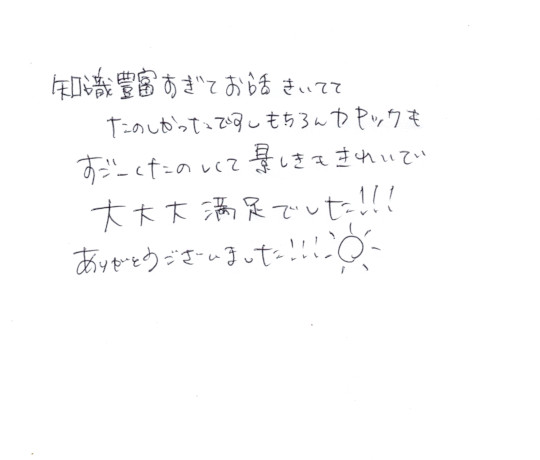 知識豊富すぎてお話きいてて
たのしかったですしもちろんカヤックも
すごーくたのしくて景しきもきれいで
大大大満足でした!!!
ありがとうございました!!!